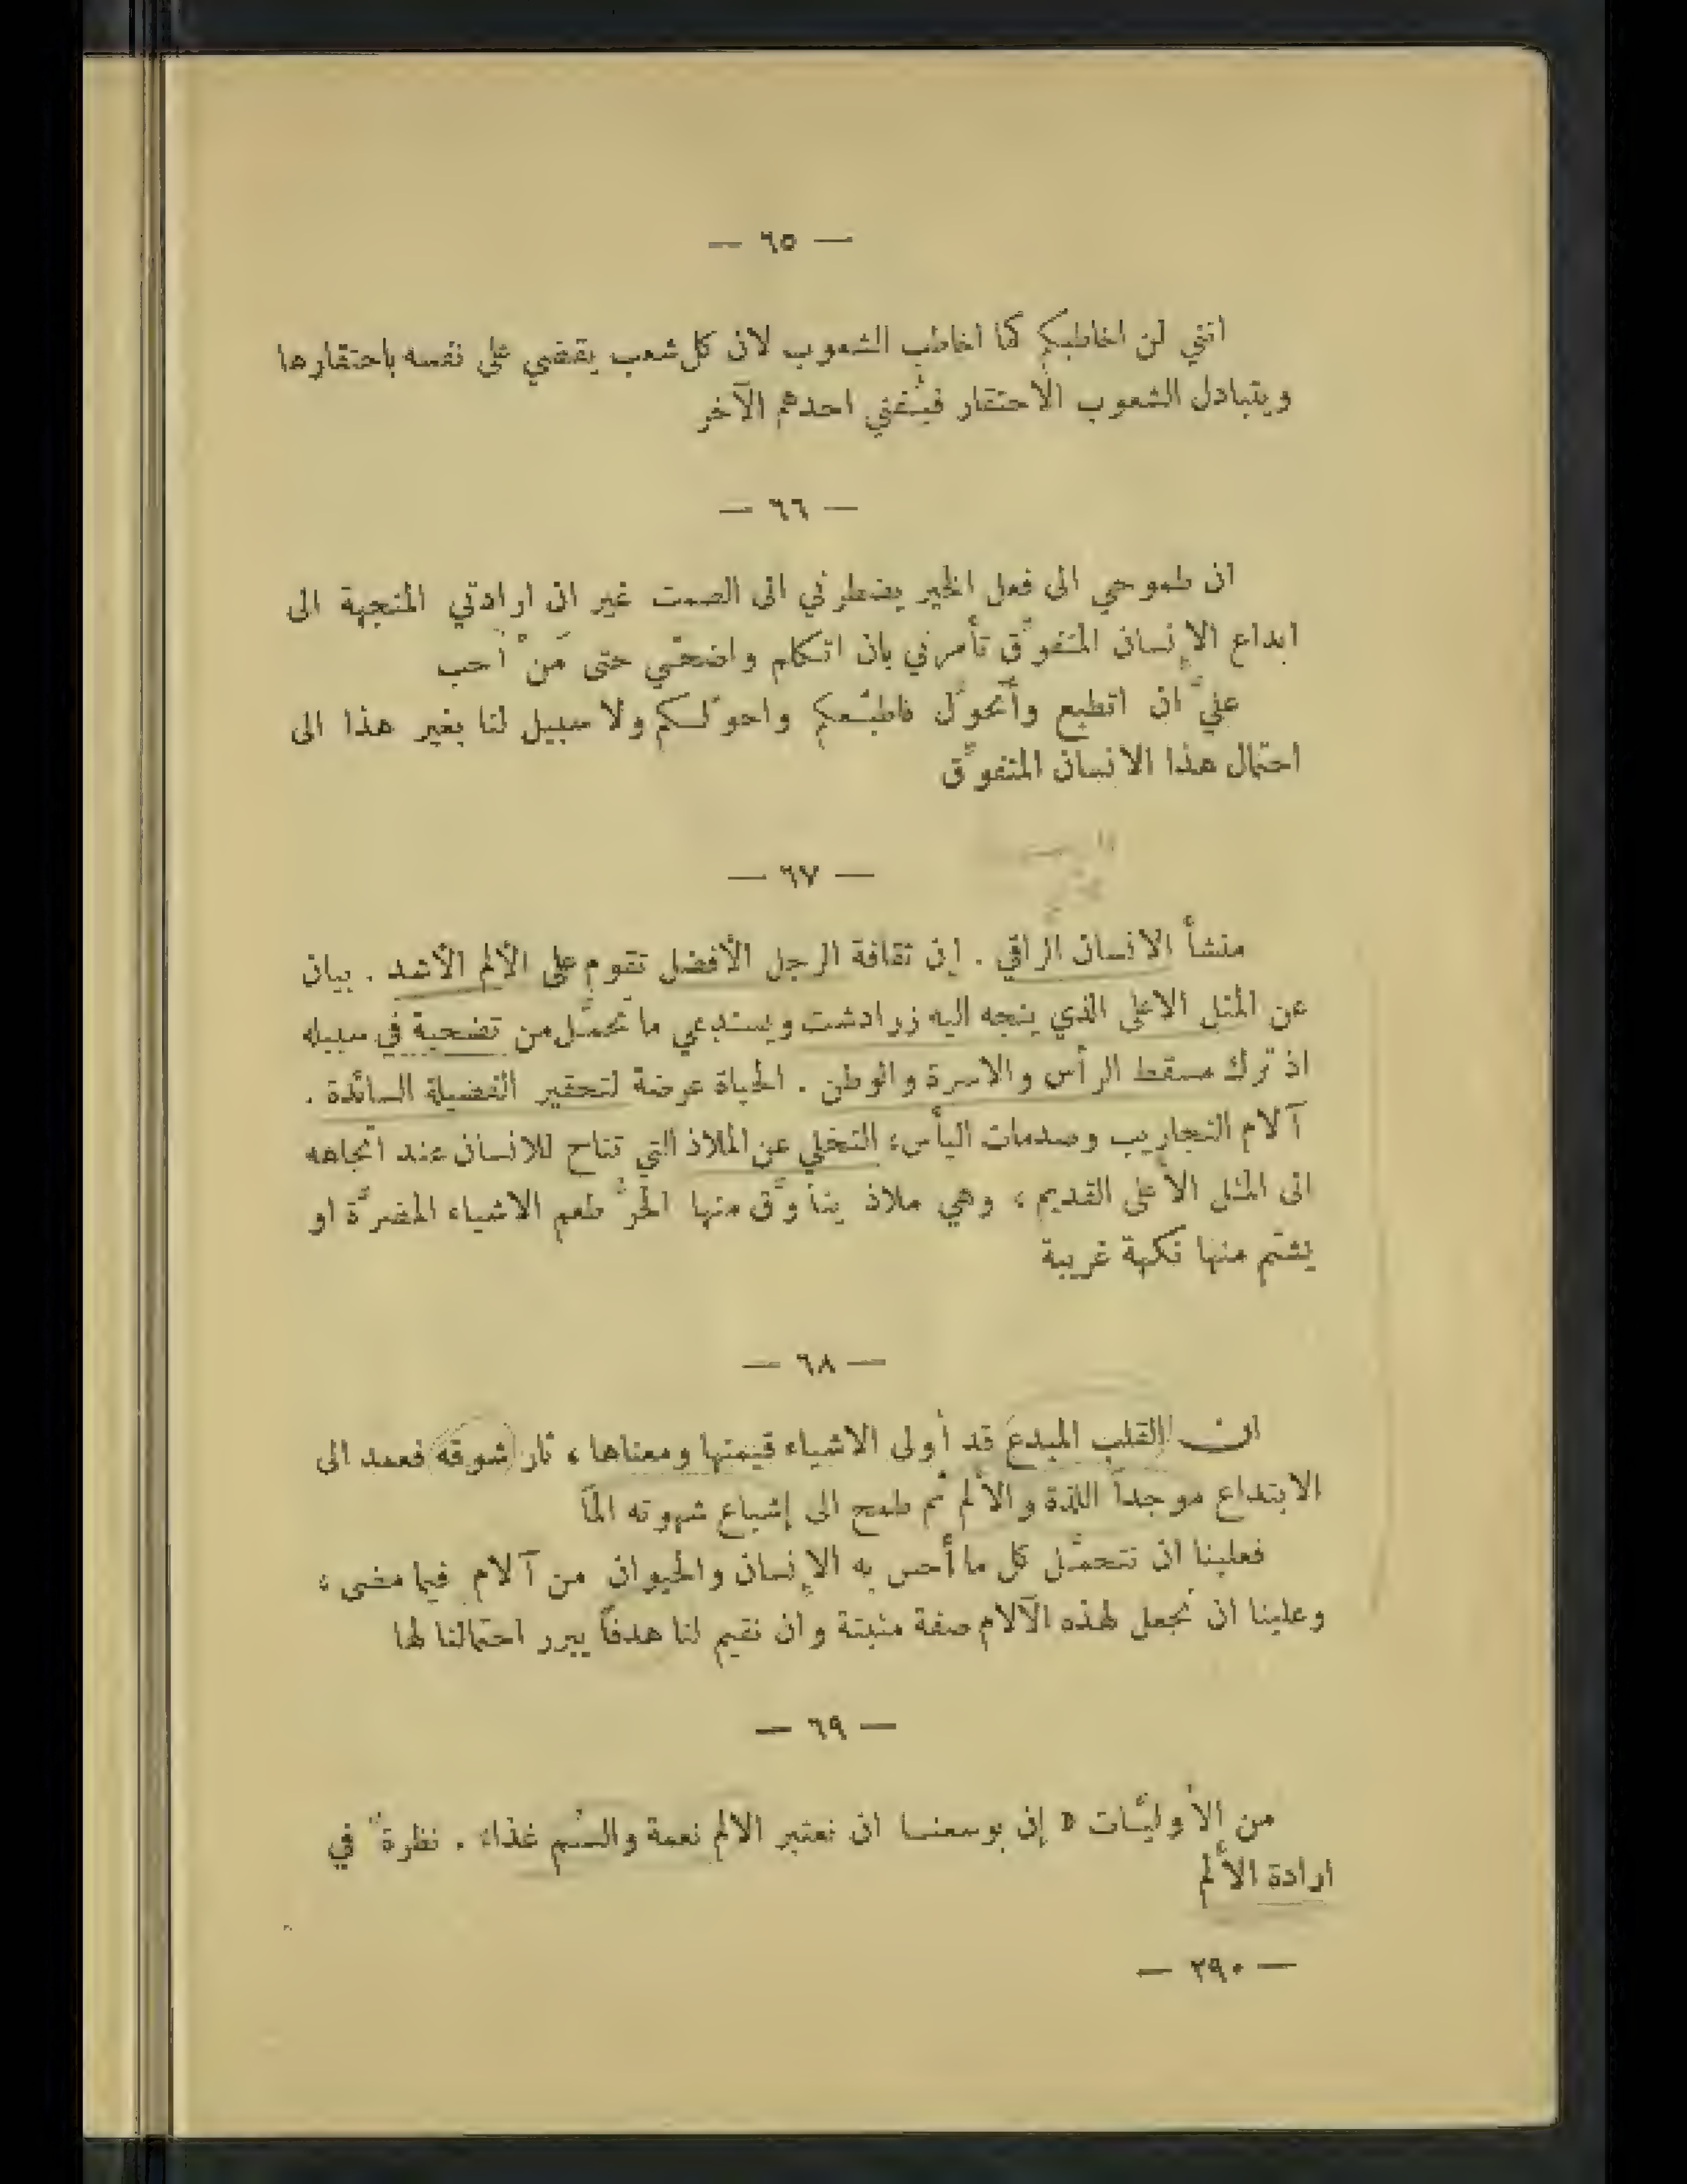 — ٦٥ —
انني لن اخاطبكم كما اخاطب الشعوب لان كل شعب يقضي على نفسه باحتقارها
ويتبادل الشعوب الاحتقار فيُفني احدهم الآخر
— ٦٦ —
ان طموحي الى فعل الخير يضطرني الى الصمت غير ان ارادتي المتجهة الى
ابداع الإنسان المتفوّق تأمرني بان اتكلم واضحّي حتى مَنْ أحب
عليّ ان اتطبع وأتحوّل فاطبّعكم واحوّلكم ولا سبيل لنا بغير هذا الى
احتمال هذا الانسان المتفوّق
— ٦٧ —
منشأ الانسان الراقي . إن ثقافة الرجل الأفضل تقوم على الألم الأشد . بيان
عن المثل الاعلى الذي يتجه اليه زرادشت ويستدعي ما تحمّل من تضحية في سبيله
اذ ترك مسقط الرأس والاسرة والوطن . الحياة عرضة لتحقير الفضيلة السائدة .
آلام التجاريب وصدمات اليأس، التخلي عن الملاذ التي تتاح للانسان عند اتجاهه
الى المثل الأعلى القديم ، وهي ملاذ يتذوّق منها الحرّ طعم الاشياء المضرّة او
يشتم منها نكهة غريبة
— ٦٨ —
ان القلب المبدع قد أولى الاشياء قيمتها ومعناها ، ثار شوقه فعمد الى
الابتداع موجداً اللذة والألم ثم طمح الى إشباع شهوته الماً
فعلينا ان نتحمّل كل ما أحس به الإنسان والحيوان من آلام فيما مضى ،
وعلينا ان نجعل لهذه الآلام صفة مثبتة وان نقيم لنا هدفاً يبرر احتمالنا لها
— ٦٩ —
من الأوليّات » إن بوسعنا ان نعتبر الالم نعمة والسُم غذاء . نظرة في
ارادة الألم
— ٢٩٠ —